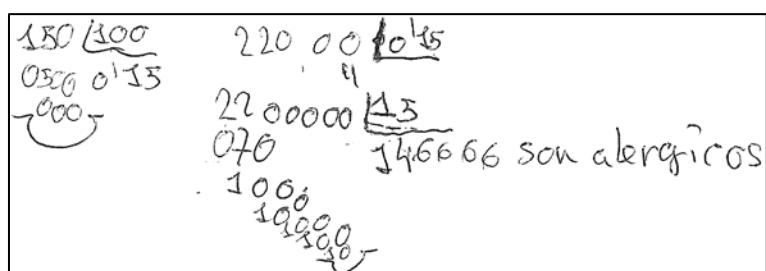 150 100
0500 0'15
000
220 00 0'15
2200000 15
070 146666 son alergicos
1000
1000
100
10